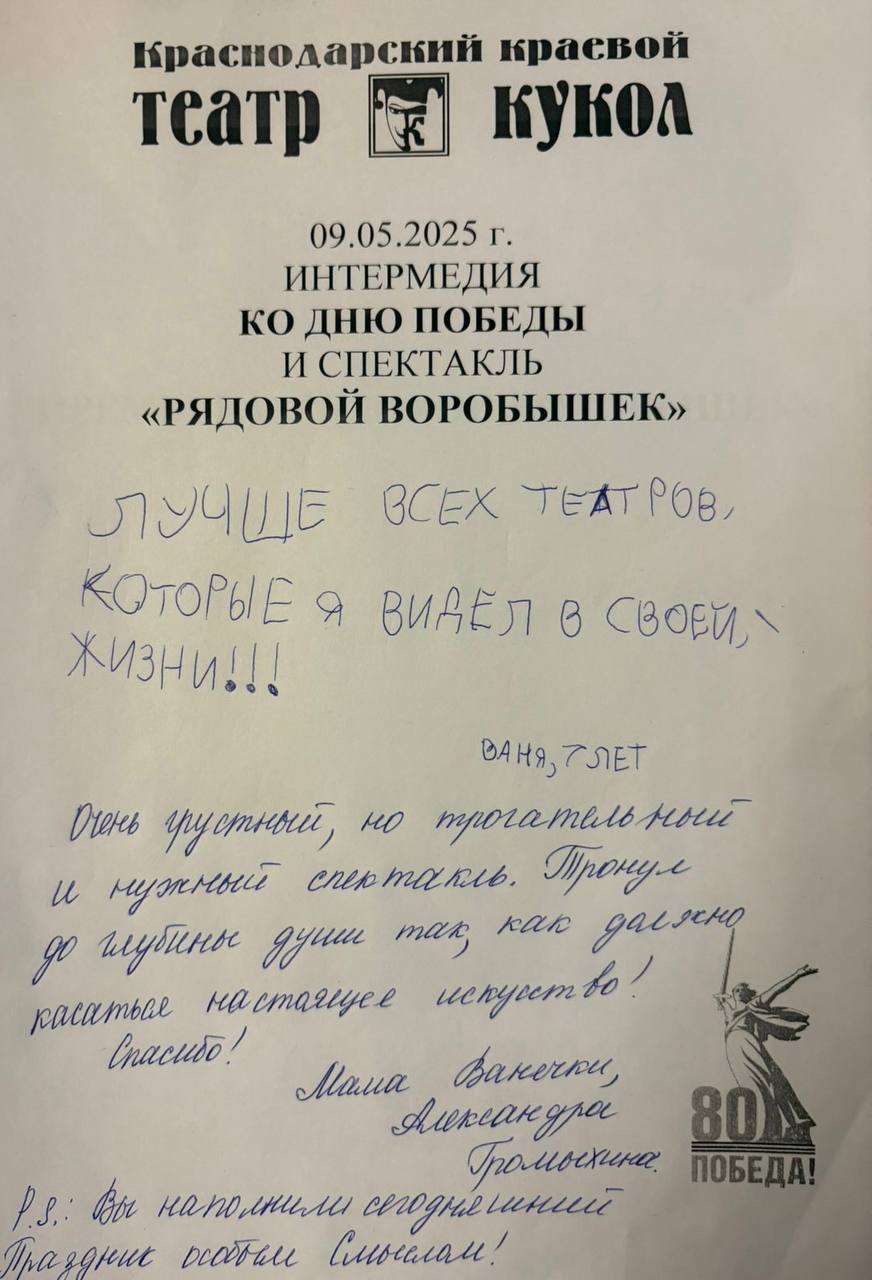 Краснодарский краевой
театр К кукол
09.05.2025 г.
ИНТЕРМЕДИЯ
КО ДНЮ ПОБЕДЫ
И СПЕКТАКЛЬ
«РЯДОВОЙ ВОРОБЫШЕК»
ЛУЧШЕ ВСЕХ ТЕАТРОВ,
КОТОРЫЕ Я ВИДЕЛ В СВОЕЙ,
ЖИЗНИ!!!
ВАНЯ, 7 ЛЕТ
Очень грустный, но трогательный
и нужный спектакль. Тронул
до глубины души так, как должно
касаться настоящее искусство!
Спасибо!
Мама Ванечки,
Александра
Громыхина.
P.S.: Вы наполнили сегодняшний
Праздник особым Смыслом!
80
ПОБЕДА!